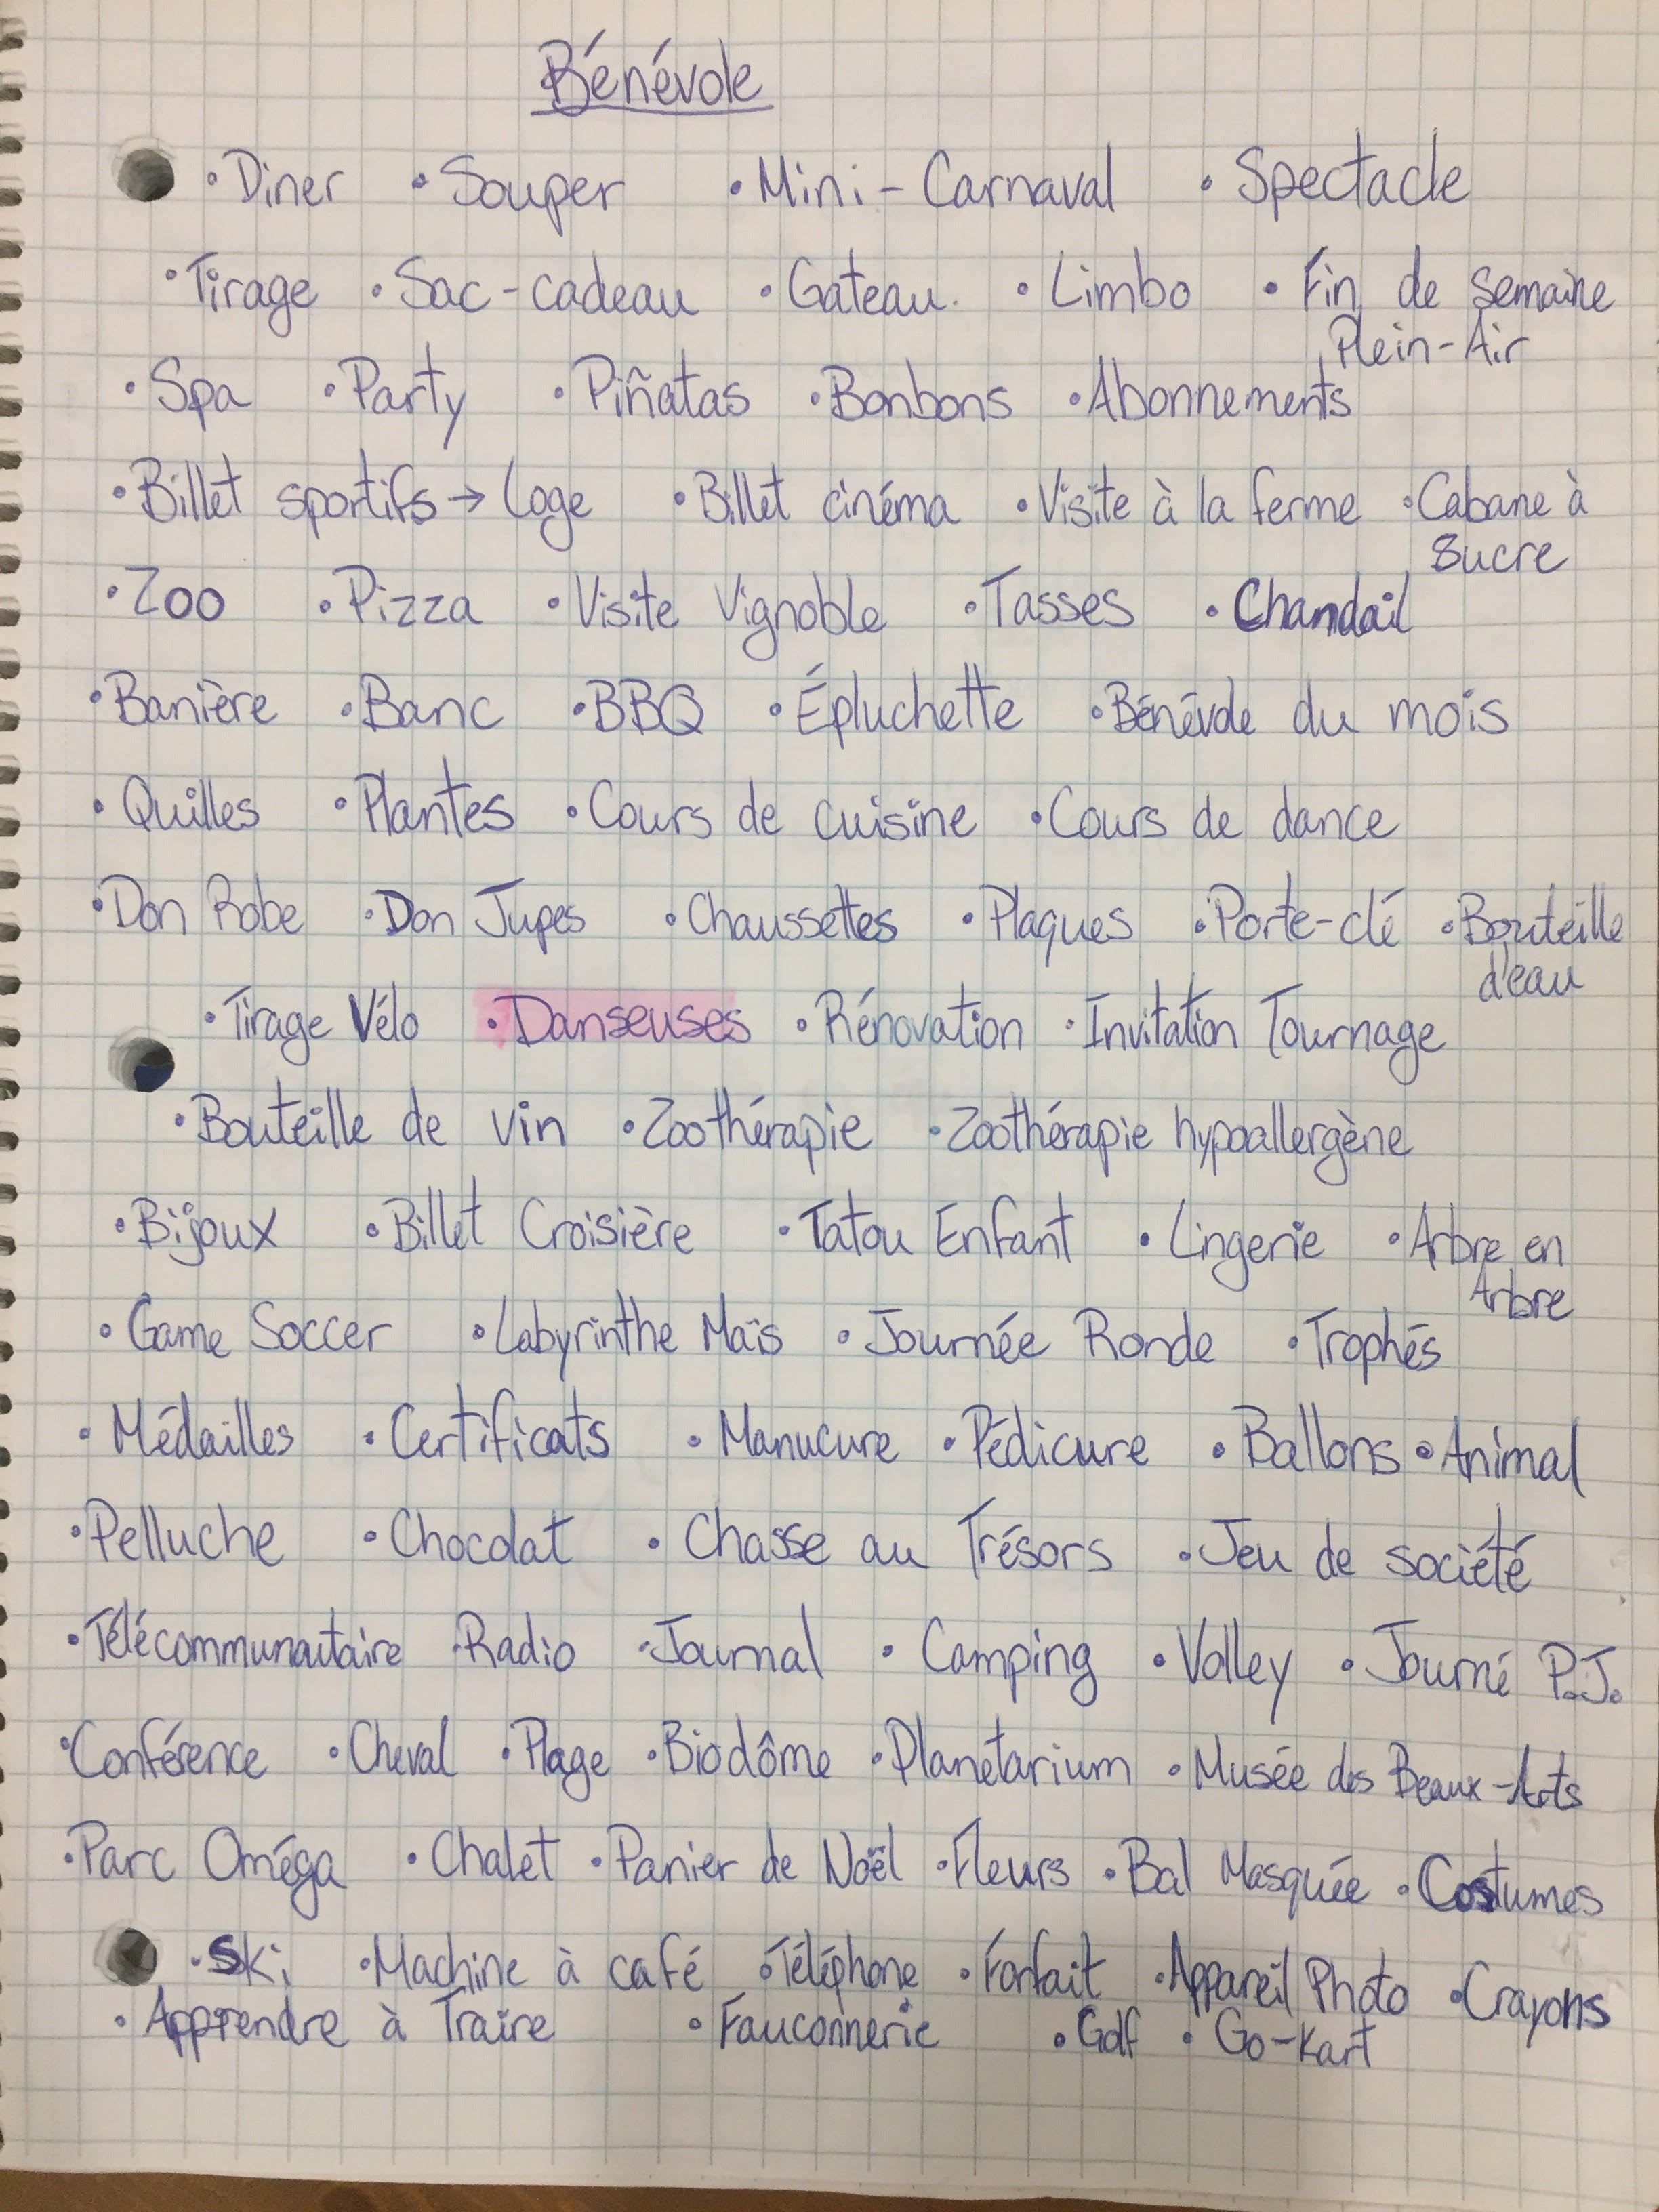 Bénévole
• Diner • Souper • Mini-Carnaval • Spectacle
• Tirage • Sac-cadeau • Gateau. • Limbo • Fin de semaine
Plein-Air
• Spa • Party • Piñatas • Bonbons • Abonnements
• Billet sportifs → Loge • Billet cinéma • Visite à la ferme • Cabane à
sucre
• Zoo • Pizza • Visite Vignoble • Tasses • Chandail
• Banière • Banc • BBQ • Épluchette • Bénévole du mois
• Quilles • Plantes • Cours de cuisine • Cours de dance
• Don Robe • Don Jupes • Chaussettes • Plaques • Porte-clé • Bouteille
d'eau
• Tirage Vélo • Danseuses • Rénovation • Invitation Tournage
• Bouteille de vin • Zoothérapie • Zoothérapie hypoallergène
• Bijoux • Billet Croisière • Tatou Enfant • Lingerie • Arbre en
Arbre
• Game Soccer • Labyrinthe Maïs • Journée Ronde • Trophés
• Médailles • Certificats • Manucure • Pédicure • Ballons • Animal
• Pelluche • Chocolat • Chasse au Trésors • Jeu de société
• Télécommunautaire • Radio • Journal • Camping • Volley • Journé P.J.
• Conférence • Cheval • Plage • Biodôme • Planétarium • Musée des Beaux-Arts
• Parc Oméga • Chalet • Panier de Noël • Fleurs • Bal Masquée • Costumes
• Ski • Machine à café • Téléphone • Forfait • Appareil Photo • Crayons
• Apprendre à Traire • Fauconnerie • Golf • Go-Kart